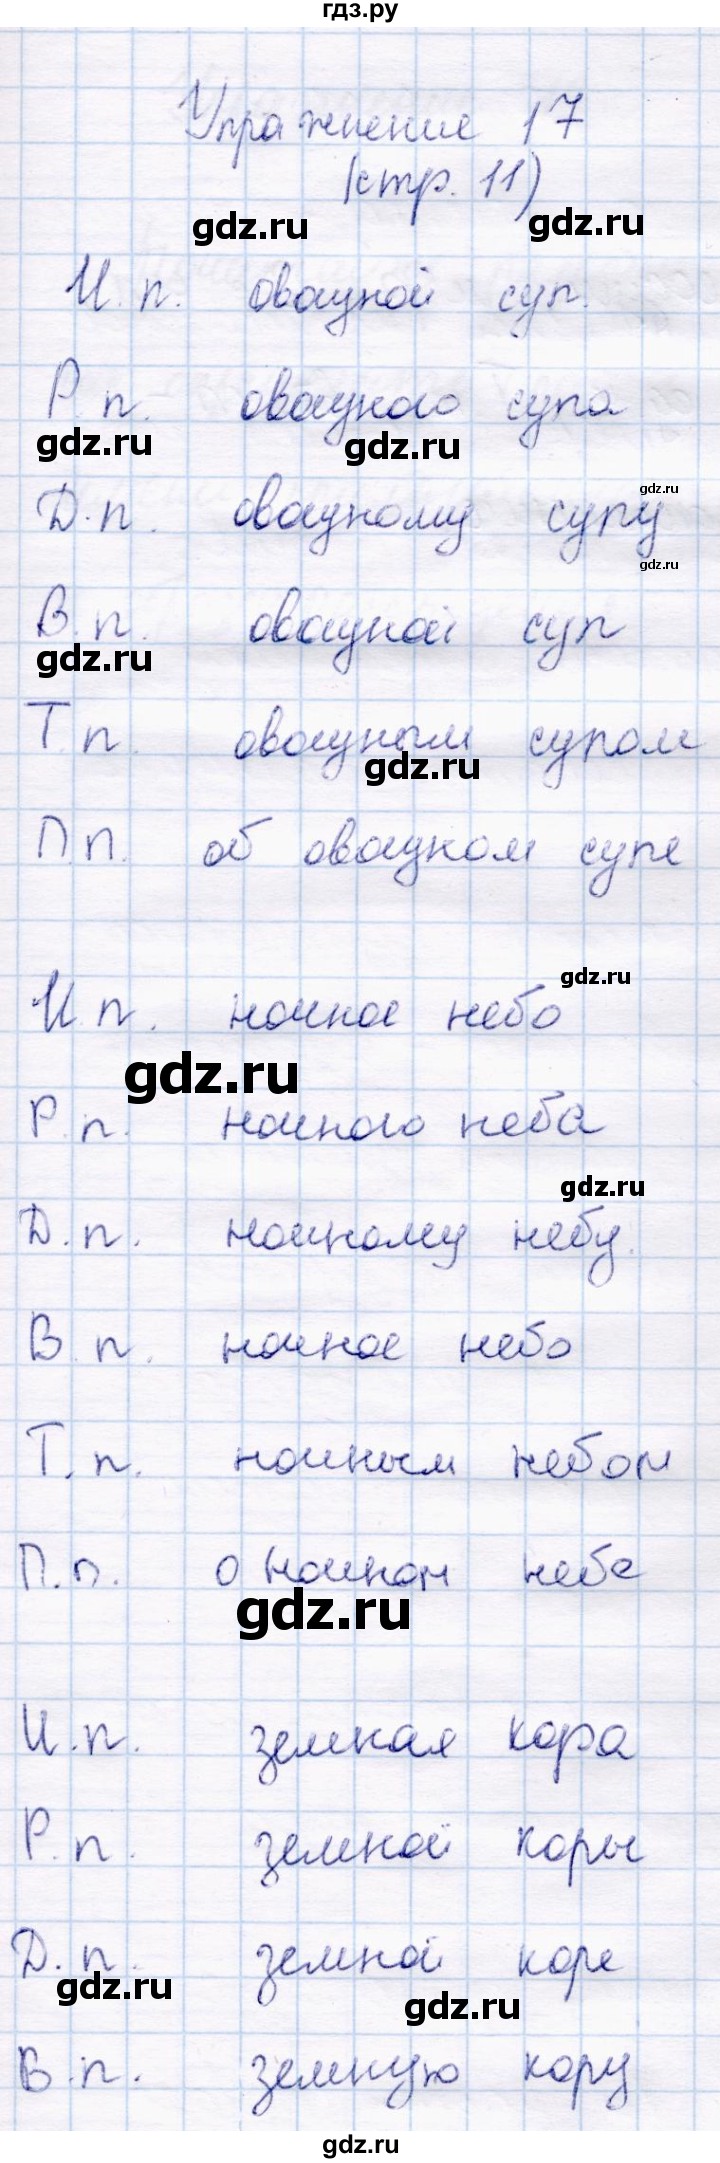 гдз.ру
Упражнение 17
(стр. 11)
gdz.ru gdz.ru
И.п. овощной суп.
Р.п. овощного супа
gdz.ru gdz.ru
gdz.ru
Д.п. овощному супу
gdz.ru
В.п. овощной суп
gdz.ru
Т.п. овощным супом
gdz.ru
П.п. об овощном супе
gdz.ru
И.п. ночное небо
gdz.ru
Р.п. ночного неба
gdz.ru
Д.п. ночному небу.
В.п. ночное небо
Т.п. ночным небом
П.п. о ночном небе
gdz.ru
И.п. земная кора
Р.п. земной коры
Д.п. земной коре
gdz.ru gdz.ru
В.п. земную кору
gdz.ru